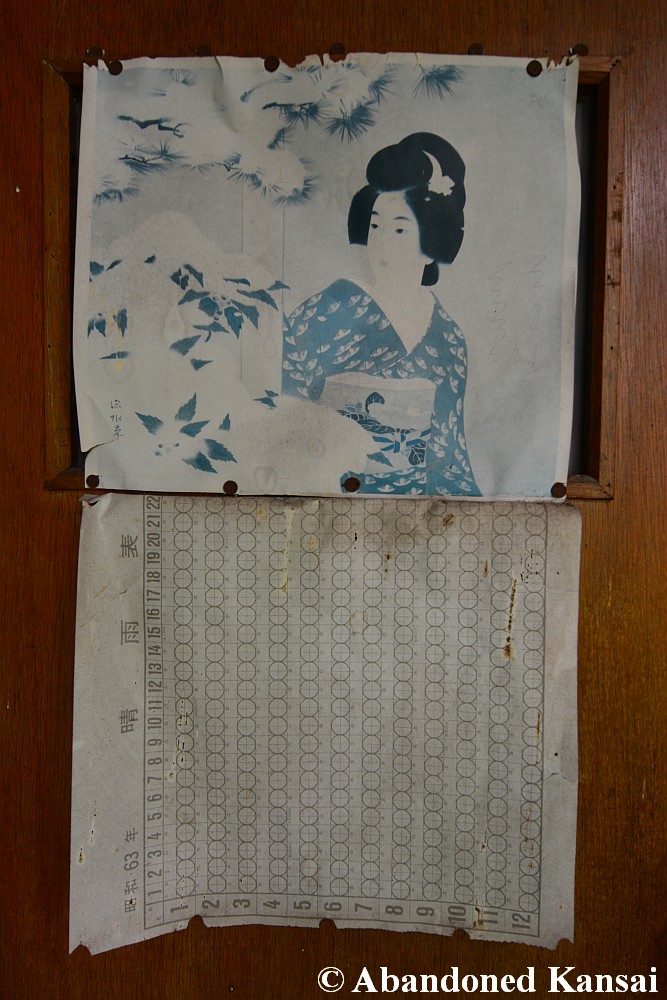 昭和 63 年 晴 雨 表
1 2 3 4 5 6 7 8 9 10 11 12 13 14 15 16 17 18 19 20 21 22
1 2 3 4 5 6 7 8 9 10 11 12
© Abandoned Kansai